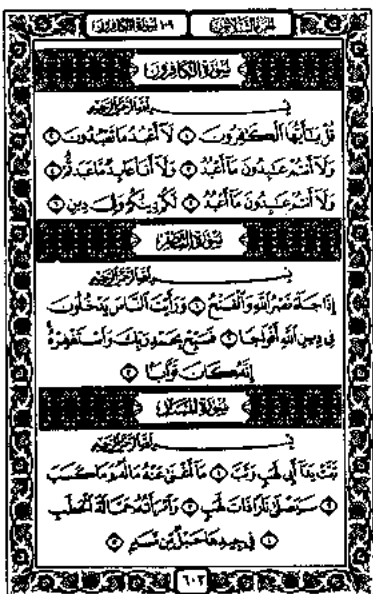 الجزء الثلاثون ١٠٩ سورة الكافرون
سورة الكافرون
بسم الله الرحمن الرحيم
قُلْ يَٰٓأَيُّهَا ٱلْكَٰفِرُونَ ١ لَآ أَعْبُدُ مَا تَعْبُدُونَ ٢
وَلَآ أَنتُمْ عَٰبِدُونَ مَآ أَعْبُدُ ٣ وَلَآ أَنَا۠ عَابِدٌ مَّا عَبَدتُّمْ ٤
وَلَآ أَنتُمْ عَٰبِدُونَ مَآ أَعْبُدُ ٥ لَكُمْ دِينُكُمْ وَلِيَ دِينِ ٦
سورة النصر
بسم الله الرحمن الرحيم
إِذَا جَآءَ نَصْرُ ٱللَّهِ وَٱلْفَتْحُ ١ وَرَأَيْتَ ٱلنَّاسَ يَدْخُلُونَ
فِي دِينِ ٱللَّهِ أَفْوَاجًا ٢ فَسَبِّحْ بِحَمْدِ رَبِّكَ وَٱسْتَغْفِرْهُ
إِنَّهُۥ كَانَ تَوَّابًۢا ٣
سورة المسد
بسم الله الرحمن الرحيم
تَبَّتْ يَدَآ أَبِي لَهَبٍ وَتَبَّ ١ مَآ أَغْنَىٰ عَنْهُ مَالُهُۥ وَمَا كَسَبَ
٢ سَيَصْلَىٰ نَارًا ذَاتَ لَهَبٍ ٣ وَٱمْرَأَتُهُۥ حَمَّالَةَ ٱلْحَطَبِ
٤ فِي جِيدِهَا حَبْلٌ مِّن مَّسَدٍۭ ٥
٦٠٣